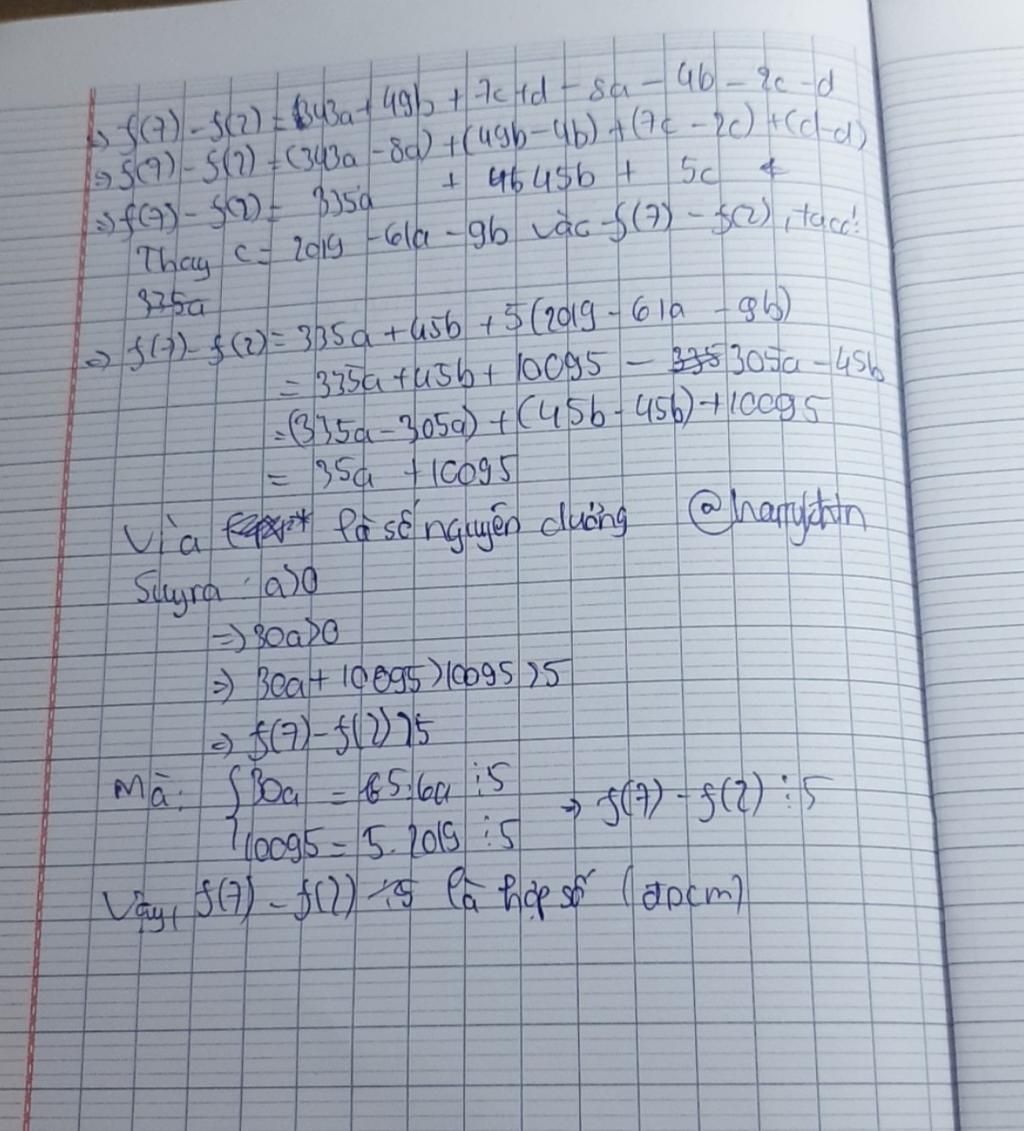 => f(7) - f(2) = 343a + 49b + 7c + d - 8a - 4b - 2c - d
=> f(7) - f(2) = (343a - 8a) + (49b - 4b) + (7c - 2c) + (d - d)
=> f(7) - f(2) = 335a + 45b + 5c
Thay c = 2019 - 61a - 9b vào f(7) - f(2), ta có:
335a
=> f(7) - f(2) = 335a + 45b + 5(2019 - 61a - 9b)
= 335a + 45b + 10095 - 305a - 45b
= (335a - 305a) + (45b - 45b) + 10095
= 35a + 10095
Vì a là số nguyên dương
Suy ra a>0
=> 30a>0
=> 30a + 10095 > 10095 > 5
=> f(7) - f(2) > 5
Mà: { 30a = 5.6a ⋮ 5
10095 = 5.2019 ⋮ 5 => f(7) - f(2) ⋮ 5
Vậy, f(7) - f(2) là hợp số (đpcm)